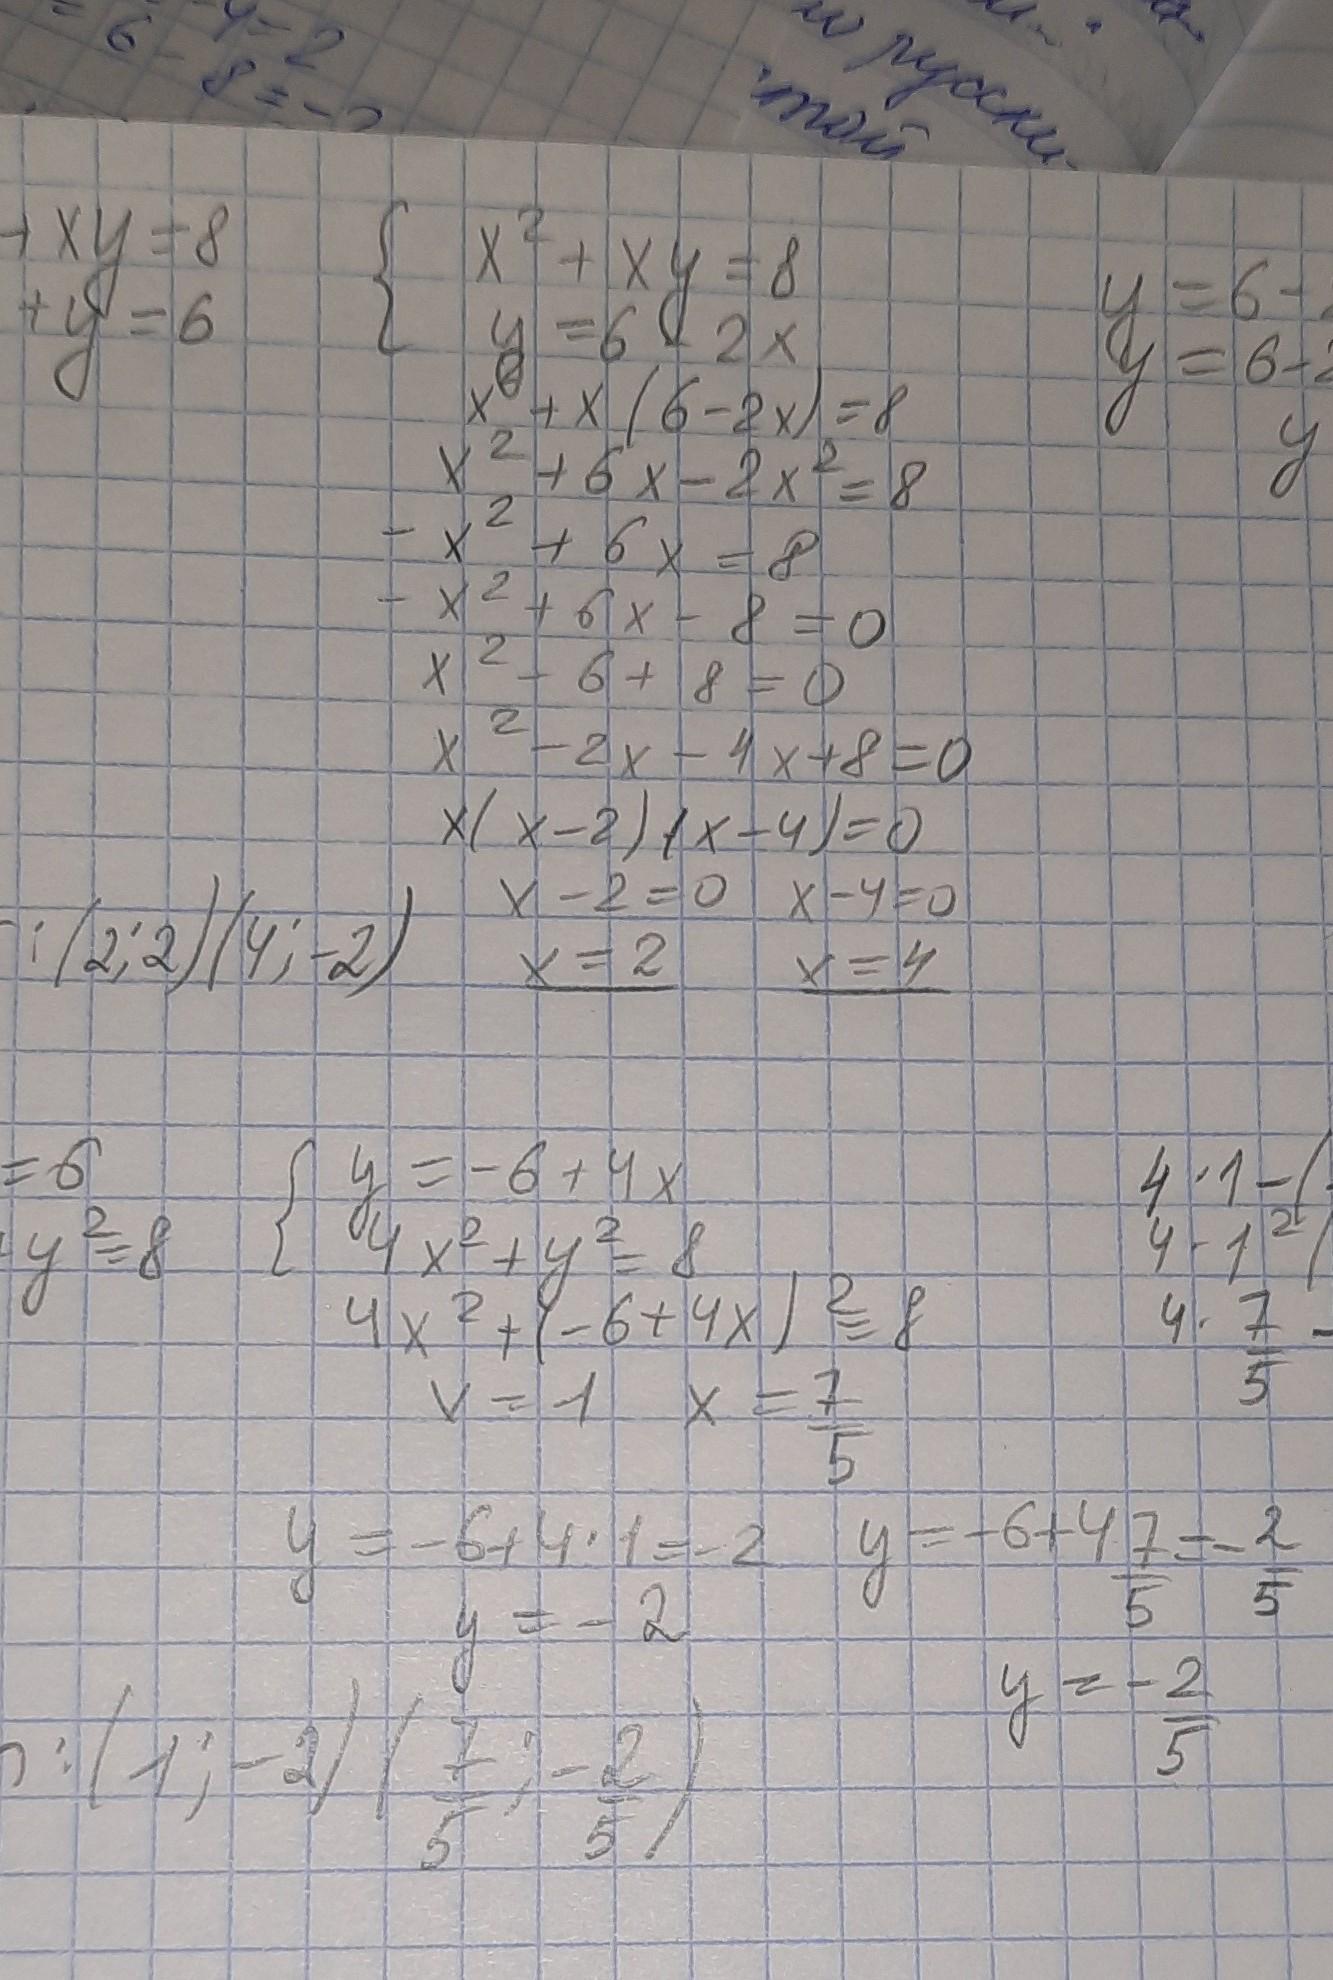 -4=2
6-8=-2
русски
той
+xy=8
+y=6
{ x²+xy=8
y=6-2x
y=6-
y=6-2
y
x²+x(6-2x)=8
x²+6x-2x²=8
-x²+6x=8
-x²+6x-8=0
x²-6+8=0
x²-2x-4x+8=0
x(x-2)(x-4)=0
x-2=0 x-4=0
x=2 x=4
:(2;2)(4;-2)
=6
+y²=8
{ y=-6+4x
4x²+y²=8
4x²+(-6+4x)²=8
x=1 x=7/5
4·1-(
4·1²(
4·7/5-
y=-6+4·1=-2 y=-6+4 7/5=-2/5
y=-2
y=-2/5
:(1;-2)(7/5;-2/5)